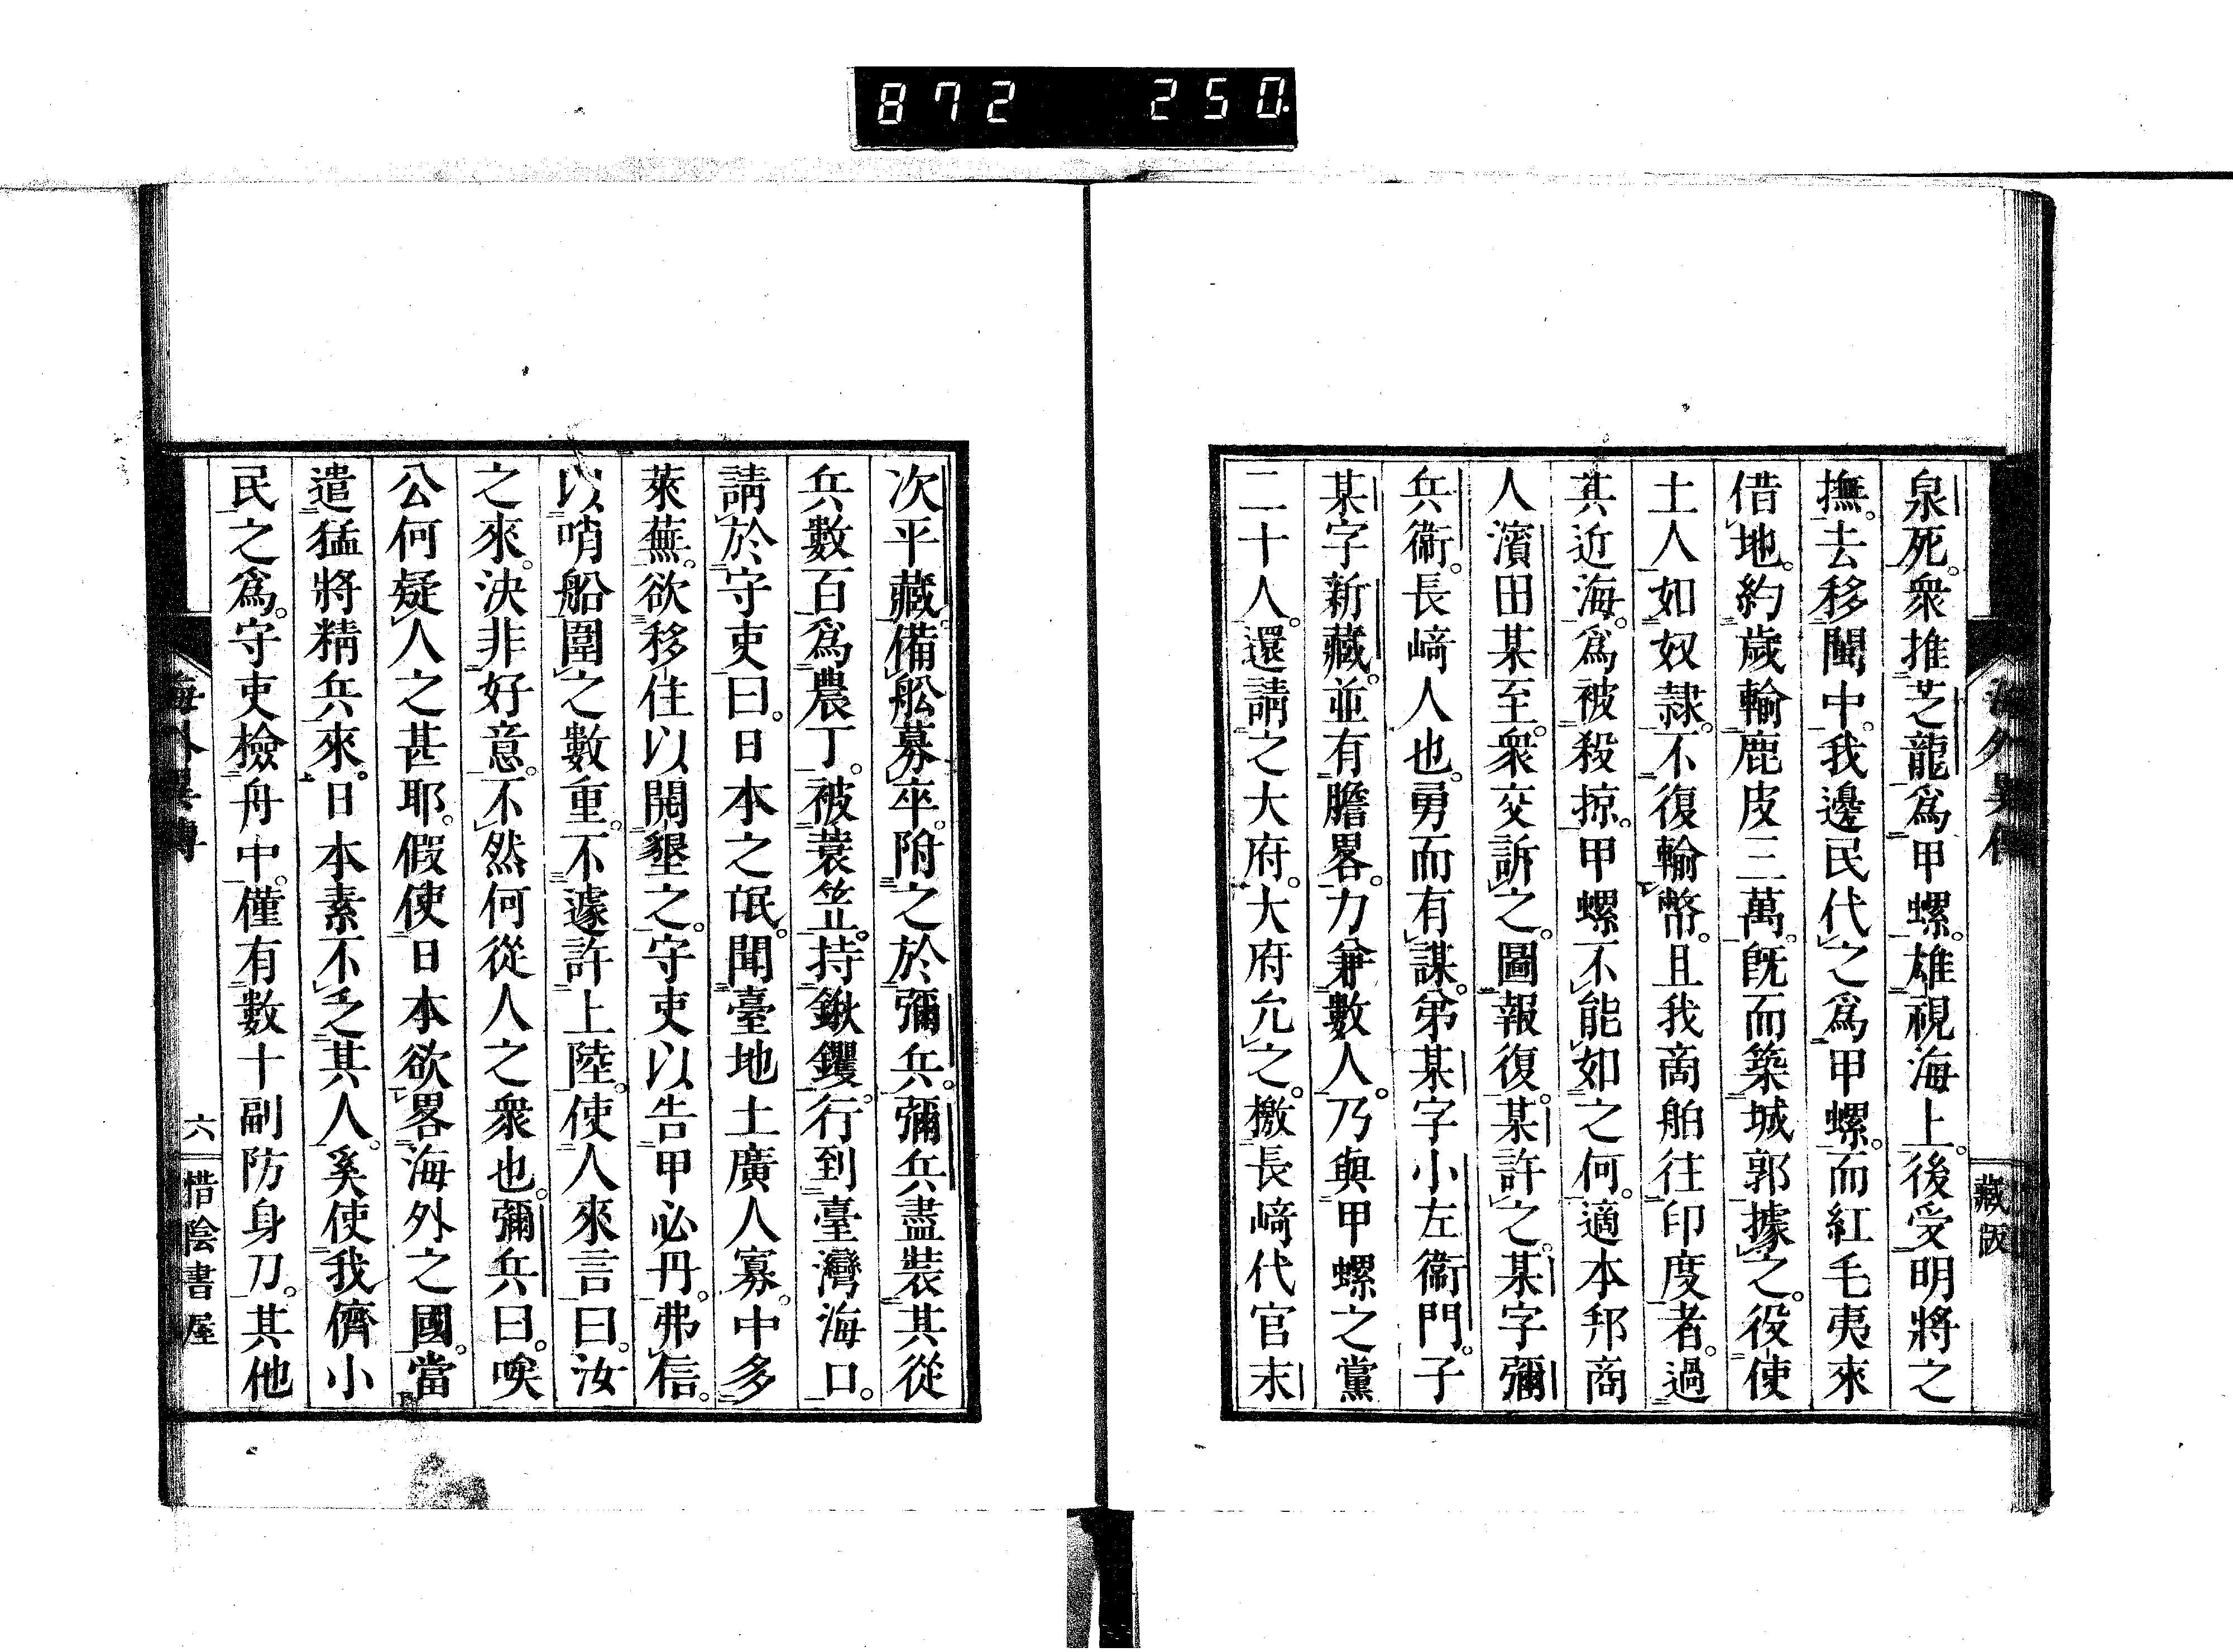 872 250
泉死。衆推芝龍爲甲螺。雄視海上。後受明將之
撫。去移閩中。我邊民代之爲甲螺。而紅毛夷來
借地。約歲輸鹿皮三萬。旣而築城郭據之。役使
土人如奴隷。不復輸幣。且我商舶往印度者。過
其近海。爲被殺掠。甲螺不能如之何。適本邦商
人濱田某至。衆交訴之。圖報復。某許之。某字彌
兵衞。長﨑人也。勇而有謀。弟某字小左衞門。子
某字新藏。並有膽畧。力兼數人。乃與甲螺之黨
二十人。還請之大府。大府允之。檄長﨑代官末
藏版
次平藏。備舩募卒。附之於彌兵。彌兵盡裝其從
兵數百爲農丁。被蓑笠。持鍬钁。行到臺灣海口。
請於守吏曰。日本之氓。聞臺地土廣人寡。中多
萊蕪。欲移住以開墾之。守吏以告甲必丹。弗信。
以哨船圍之數重。不遽許上陸。使人來言曰。汝
之來。決非好意。不然何從人之衆也。彌兵曰。唉
公何疑人之甚耶。假使日本欲畧海外之國。當
遣猛將精兵來。日本素不乏其人。奚使我儕小
民之爲。守吏檢舟中。僅有數十副防身刀。其他
海外異傳
六
惜陰書屋